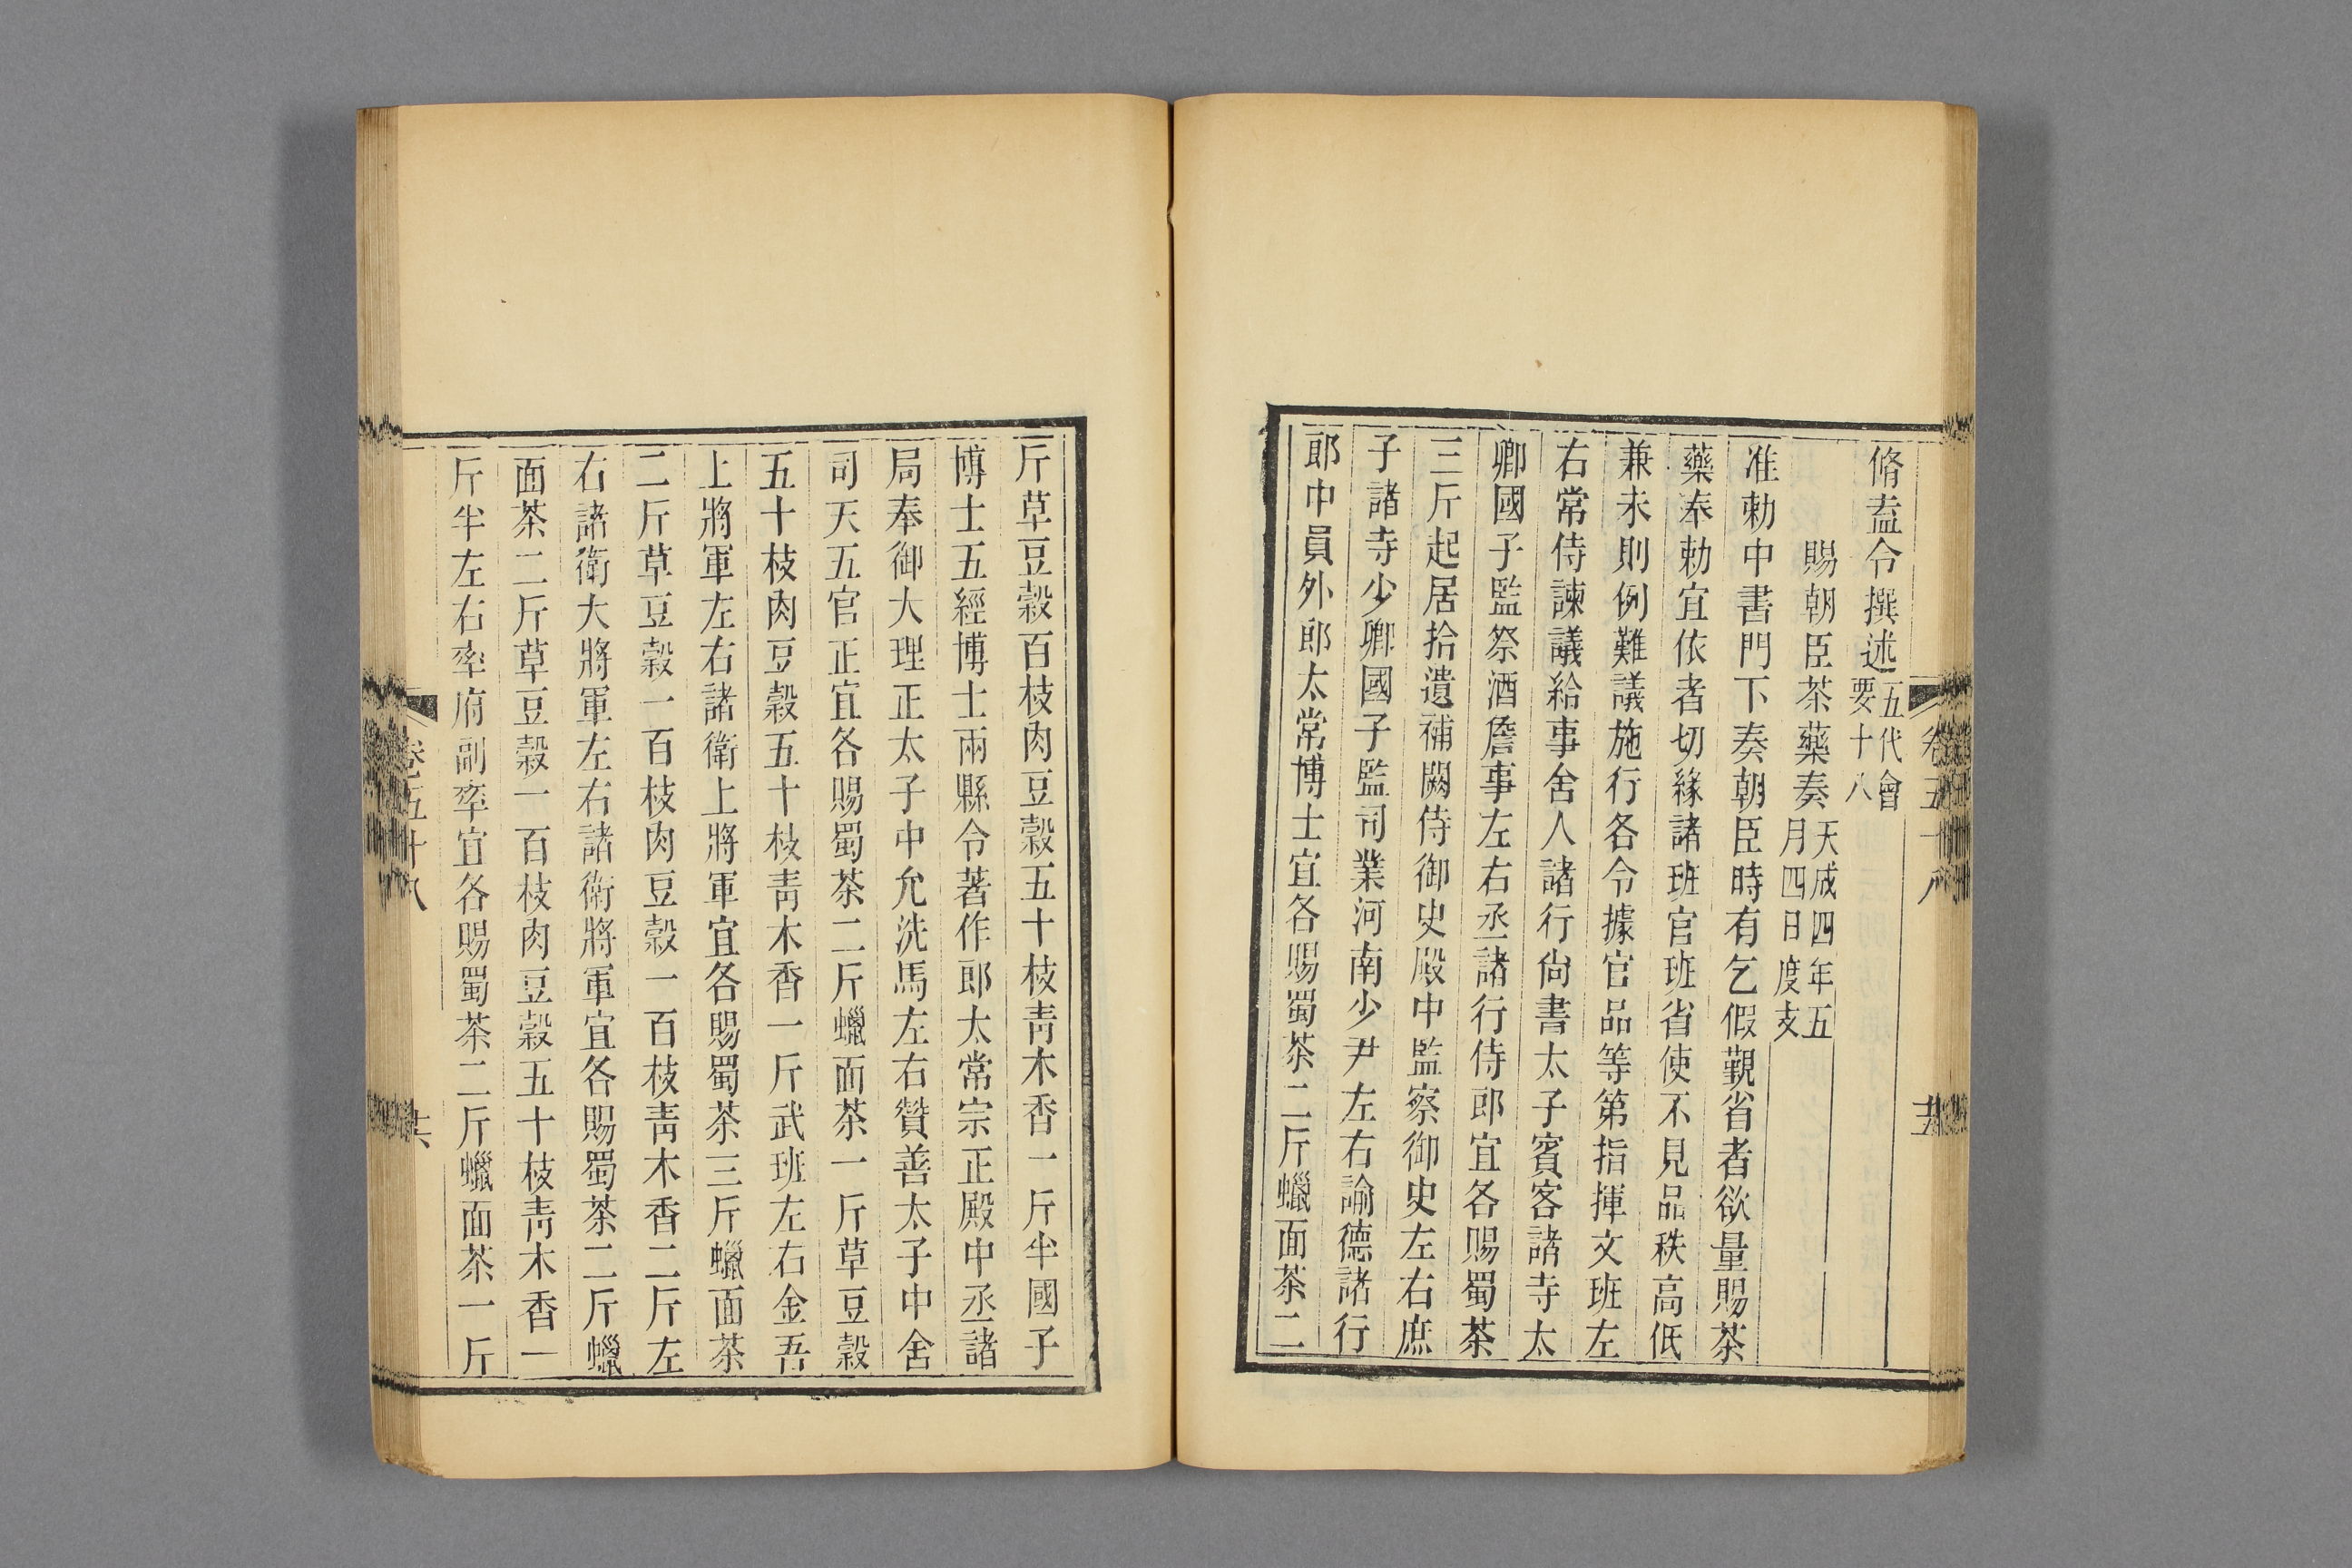 卷五十八
十五
脩盍令撰述五代會
要十八
賜朝臣茶藥奏天成四年五
月四日度支
准勅中書門下奏朝臣時有乞假覲省者欲量賜茶
藥奉勅宜依者切緣諸班官班省使不見品秩高低
兼未則例難議施行各令據官品等第指揮文班左
右常侍諫議給事舍人諸行尙書太子賓客諸寺太
卿國子監祭酒詹事左右丞諸行侍郎宜各賜蜀茶
三斤起居拾遺補闕侍御史殿中監察御史左右庶
子諸寺少卿國子監司業河南少尹左右諭德諸行
郎中員外郎太常博士宜各賜蜀茶二斤蠟面茶二
斤草豆蔻百枝肉豆蔻五十枝靑木香一斤半國子
博士五經博士兩縣令著作郎太常宗正殿中丞諸
局奉御大理正太子中允洗馬左右贊善太子中舍
司天五官正宜各賜蜀茶二斤蠟面茶一斤草豆蔻
五十枝肉豆蔻五十枝靑木香一斤武班左右金吾
上將軍左右諸衛上將軍宜各賜蜀茶三斤蠟面茶
二斤草豆蔻一百枝肉豆蔻一百枝靑木香二斤左
右諸衛大將軍左右諸衛將軍宜各賜蜀茶二斤蠟
面茶二斤草豆蔻一百枝肉豆蔻五十枝靑木香一
斤半左右率府副率宜各賜蜀茶二斤蠟面茶一斤
卷五十八
十六